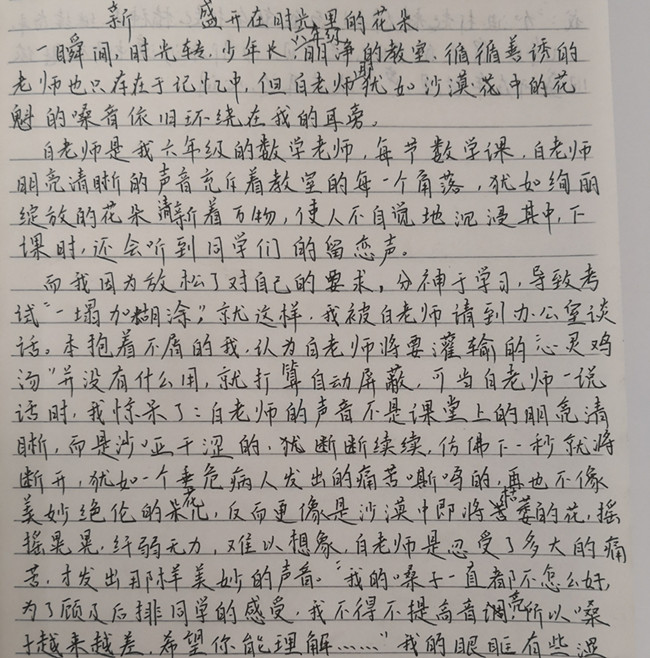 新 盛开在时光里的花朵
一瞬间,时光转,少年长,六年级明净的教室,循循善诱的
老师也只存在于记忆中,但白老师那犹如沙漠花中的花
魁的嗓音依旧环绕在我的耳旁。
白老师是我六年级的数学老师,每节数学课,白老师
明亮清晰的声音充斥着教室的每一个角落,犹如绚丽
绽放的花朵清新着万物,使人不自觉地沉浸其中,下
课时,还会听到同学们的留恋声。
而我因为放松了对自己的要求,分神于学习,导致考
试“一塌加糊涂”,就这样,我被白老师请到办公室谈
话。本抱着不屑的我,认为白老师将要灌输的“心灵鸡
汤”并没有什么用,就打算自动屏蔽,可当白老师一说
话时,我惊呆了:白老师的声音不是课堂上的明亮清
晰,而是沙哑干涩的,犹断断续续,仿佛下一秒就将
断开,犹如一个垂危病人发出的痛苦嘶鸣的,再也不像
美妙绝伦的花朵,反而更像是沙漠中即将枯萎的花,摇
摇晃晃,纤弱无力,难以想象,白老师是忍受了多大的痛
苦,才发出那样美妙的声音。“我的嗓子一直都不怎么好,
为了顾及后排同学的感受,我不得不提高音调亮,所以嗓
子越来越差,希望你能理解……”我的眼眶有些湿